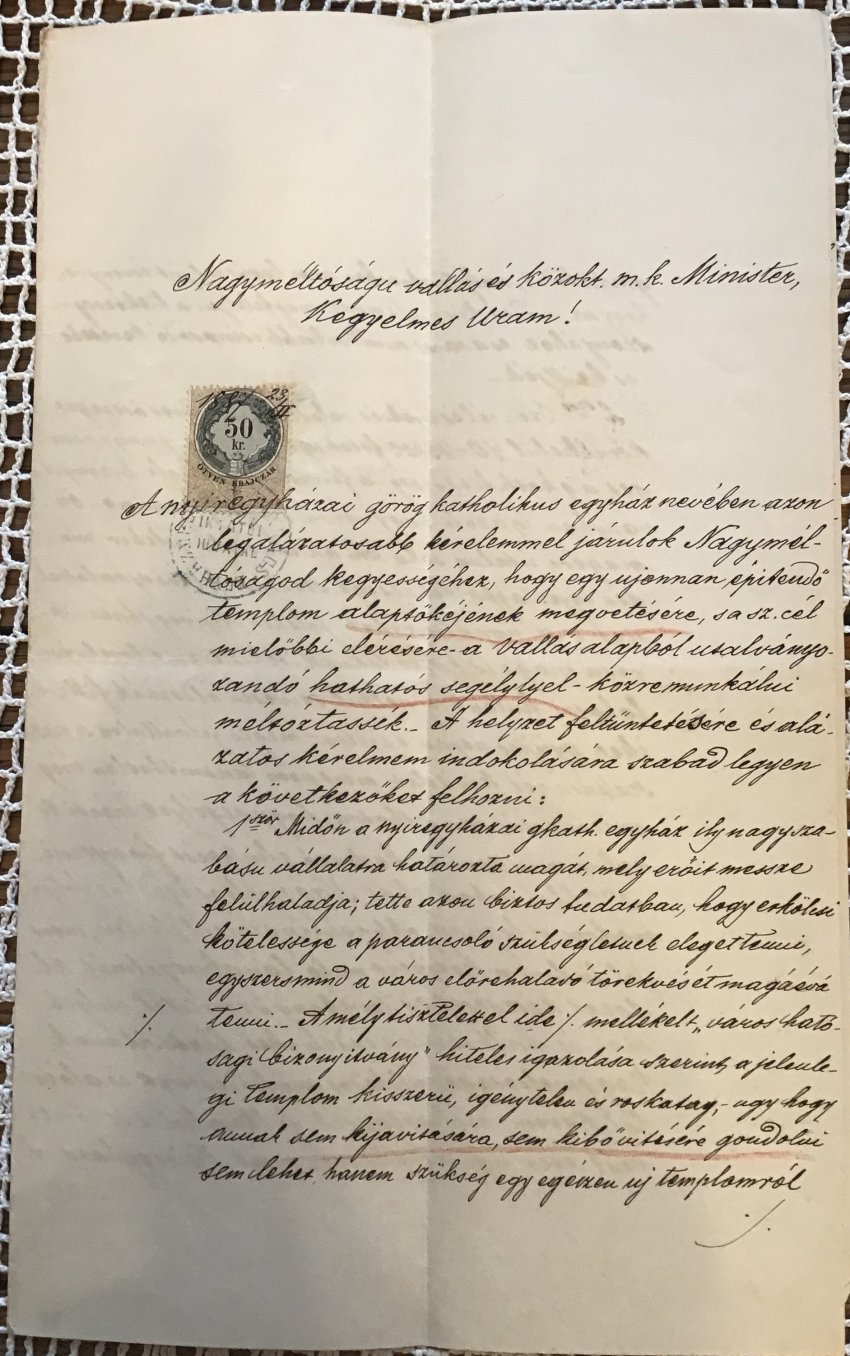 Nagyméltóságu vallás és közokt. m. k. Minister,
Kegyelmes Uram!
1887 23/II
50
kr.
ÖTVEN KRAJCZÁR
A nyiregyházai görög katholikus egyház nevében azon
legalázatosabb kérelemmel járulok Nagymél-
tóságod kegyességéhez, hogy egy ujonnan épitendő
templom alaptőkéjének megvetésére, s a sz. cél
mielőbbi elérésére - a vallásalapból utalványo-
zandó hathatós segélylyel - közremunkálni
méltóztassék. - A helyzet feltüntetésére és alá-
zatos kérelmem indokolására szabad legyen
a következőket felhozni:
1ször Midőn a nyiregyházai gkath. egyház ily nagysza-
básu vállalatra határozta magát, mely erőit messze
felülhaladja; tette azon biztos tudatban, hogy erkölcsi
kötelessége a parancsoló szükségletnek eleget tenni,
egyszersmind a város előrehaladó törekvését magáévá
./. tenni. - A mély tisztelettel ide ./. mellékelt „város ható-
sagi bizonyitvány" hiteles igazolása szerint, a jelenle-
gi templom kisszerü, igénytelen és roskatag, - ugy hogy
annak sem kijavitására, sem kibővitésére gondolni
sem lehet, hanem szükség egy egészen uj templomról
./.